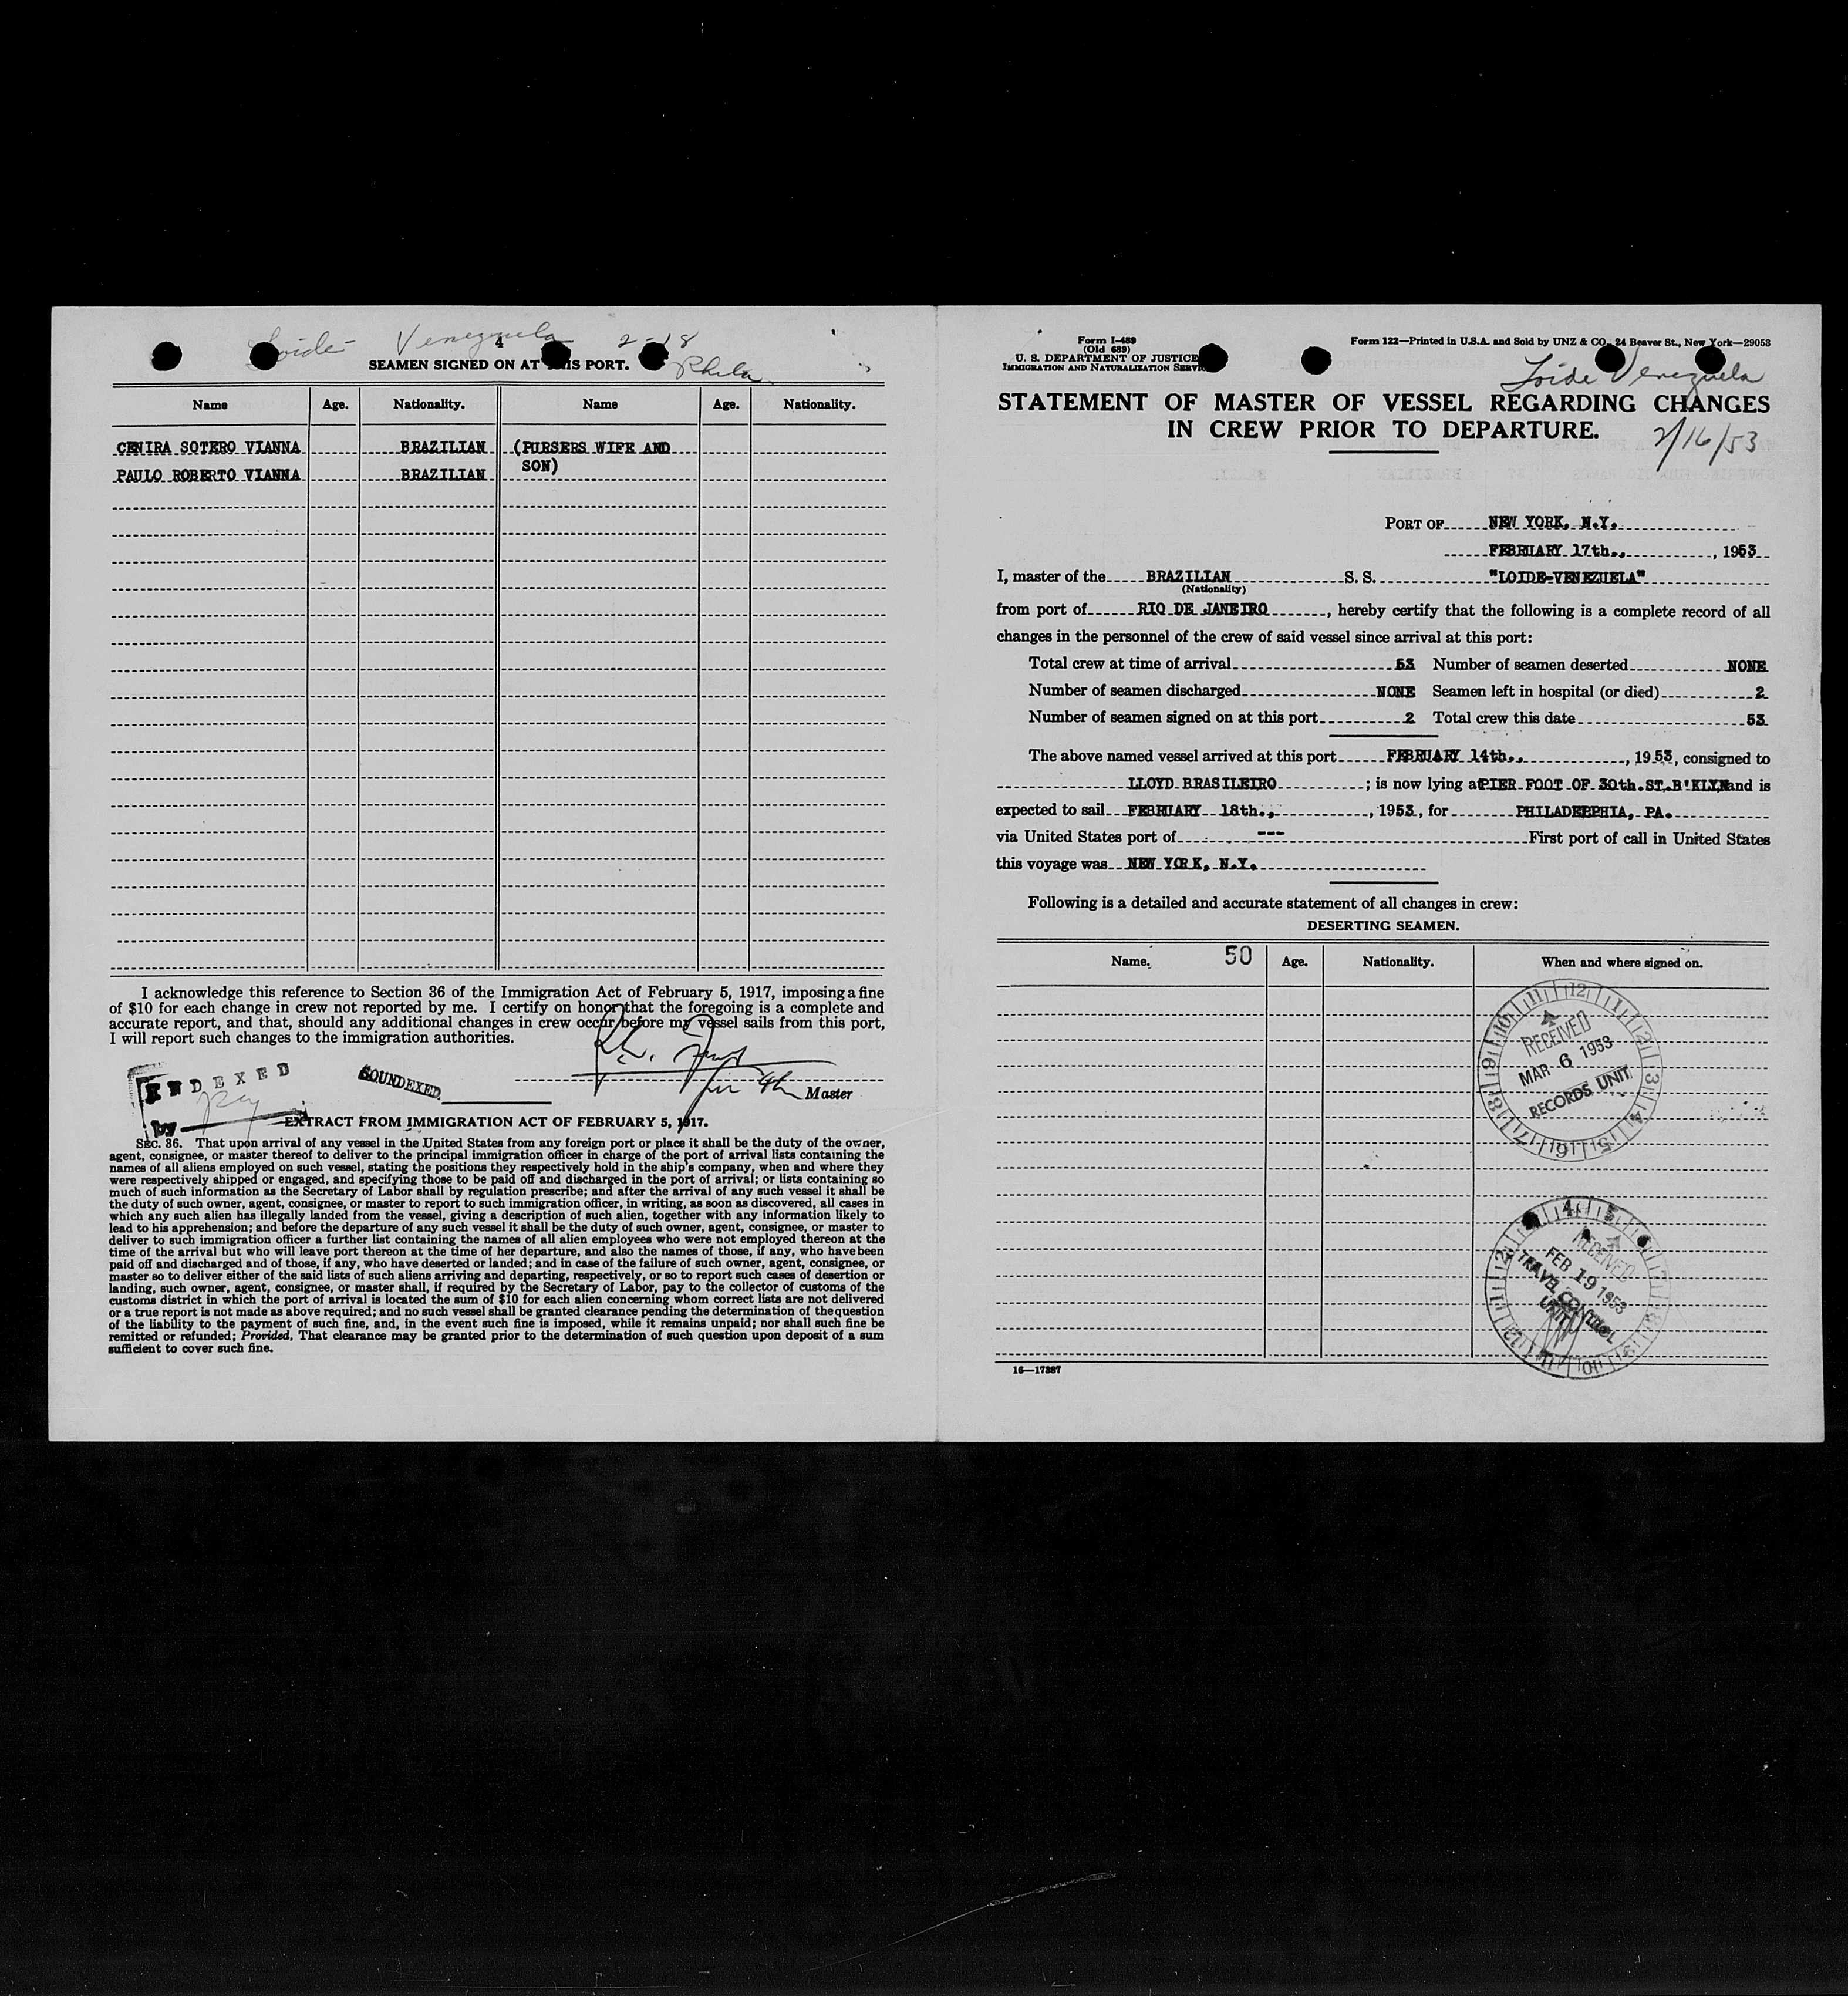 Loide- Venezuela 2-18
4
SEAMEN SIGNED ON AT THIS PORT. Phila
Name Age. Nationality. Name Age. Nationality.
CENIRA SOTERO VIANNA BRAZILIAN (PURSERS WIFE AND
SON)
PAULO ROBERTO VIANNA BRAZILIAN
I acknowledge this reference to Section 36 of the Immigration Act of February 5, 1917, imposing a fine
of $10 for each change in crew not reported by me. I certify on honor that the foregoing is a complete and
accurate report, and that, should any additional changes in crew occur before my vessel sails from this port,
I will report such changes to the immigration authorities.
INDEXED
SOUNDEXED
Master
by
EXTRACT FROM IMMIGRATION ACT OF FEBRUARY 5, 1917.
SEC. 36. That upon arrival of any vessel in the United States from any foreign port or place it shall be the duty of the owner,
agent, consignee, or master thereof to deliver to the principal immigration officer in charge of the port of arrival lists containing the
names of all aliens employed on such vessel, stating the positions they respectively hold in the ship's company, when and where they
were respectively shipped or engaged, and specifying those to be paid off and discharged in the port of arrival; or lists containing so
much of such information as the Secretary of Labor shall by regulation prescribe; and after the arrival of any such vessel it shall be
the duty of such owner, agent, consignee, or master to report to such immigration officer, in writing, as soon as discovered, all cases in
which any such alien has illegally landed from the vessel, giving a description of such alien, together with any information likely to
lead to his apprehension; and before the departure of any such vessel it shall be the duty of such owner, agent, consignee, or master to
deliver to such immigration officer a further list containing the names of all alien employees who were not employed thereon at the
time of the arrival but who will leave port thereon at the time of her departure, and also the names of those, if any, who have been
paid off and discharged and of those, if any, who have deserted or landed; and in case of the failure of such owner, agent, consignee, or
master so to deliver either of the said lists of such aliens arriving and departing, respectively, or so to report such cases of desertion or
landing, such owner, agent, consignee, or master shall, if required by the Secretary of Labor, pay to the collector of customs of the
customs district in which the port of arrival is located the sum of $10 for each alien concerning whom correct lists are not delivered
or a true report is not made as above required; and no such vessel shall be granted clearance pending the determination of the question
of the liability to the payment of such fine, and, in the event such fine is imposed, while it remains unpaid; nor shall such fine be
remitted or refunded; Provided, That clearance may be granted prior to the determination of such question upon deposit of a sum
sufficient to cover such fine.
Form I-489
(Old 689)
U. S. DEPARTMENT OF JUSTICE
IMMIGRATION AND NATURALIZATION SERVICE
Form 122—Printed in U.S.A. and Sold by UNZ & CO., 24 Beaver St., New York—29053
Loide Venezuela
STATEMENT OF MASTER OF VESSEL REGARDING CHANGES
IN CREW PRIOR TO DEPARTURE.
2/16/53
PORT OF NEW YORK, N.Y.
FEBRUARY 17th., , 1953
I, master of the BRAZILIAN S. S. "LOIDE-VENEZUELA"
(Nationality)
from port of RIO DE JANEIRO , hereby certify that the following is a complete record of all
changes in the personnel of the crew of said vessel since arrival at this port:
Total crew at time of arrival 53 Number of seamen deserted NONE
Number of seamen discharged NONE Seamen left in hospital (or died) 2
Number of seamen signed on at this port 2 Total crew this date 53
The above named vessel arrived at this port FEBRUARY 14th., , 1953, consigned to
LLOYD BRASILEIRO ; is now lying at PIER FOOT OF 30th.ST.B'KLYN and is
expected to sail FEBRUARY 18th., , 1953, for PHILADEPPHIA, PA.
via United States port of --- First port of call in United States
this voyage was NEW YORK, N.Y.
Following is a detailed and accurate statement of all changes in crew:
DESERTING SEAMEN.
Name. 50 Age. Nationality. When and where signed on.
RECEIVED
MAR 6 1953
RECORDS UNIT
RECEIVED
FEB 19 1953
TRAVEL CONTROL
UNIT
16—17387